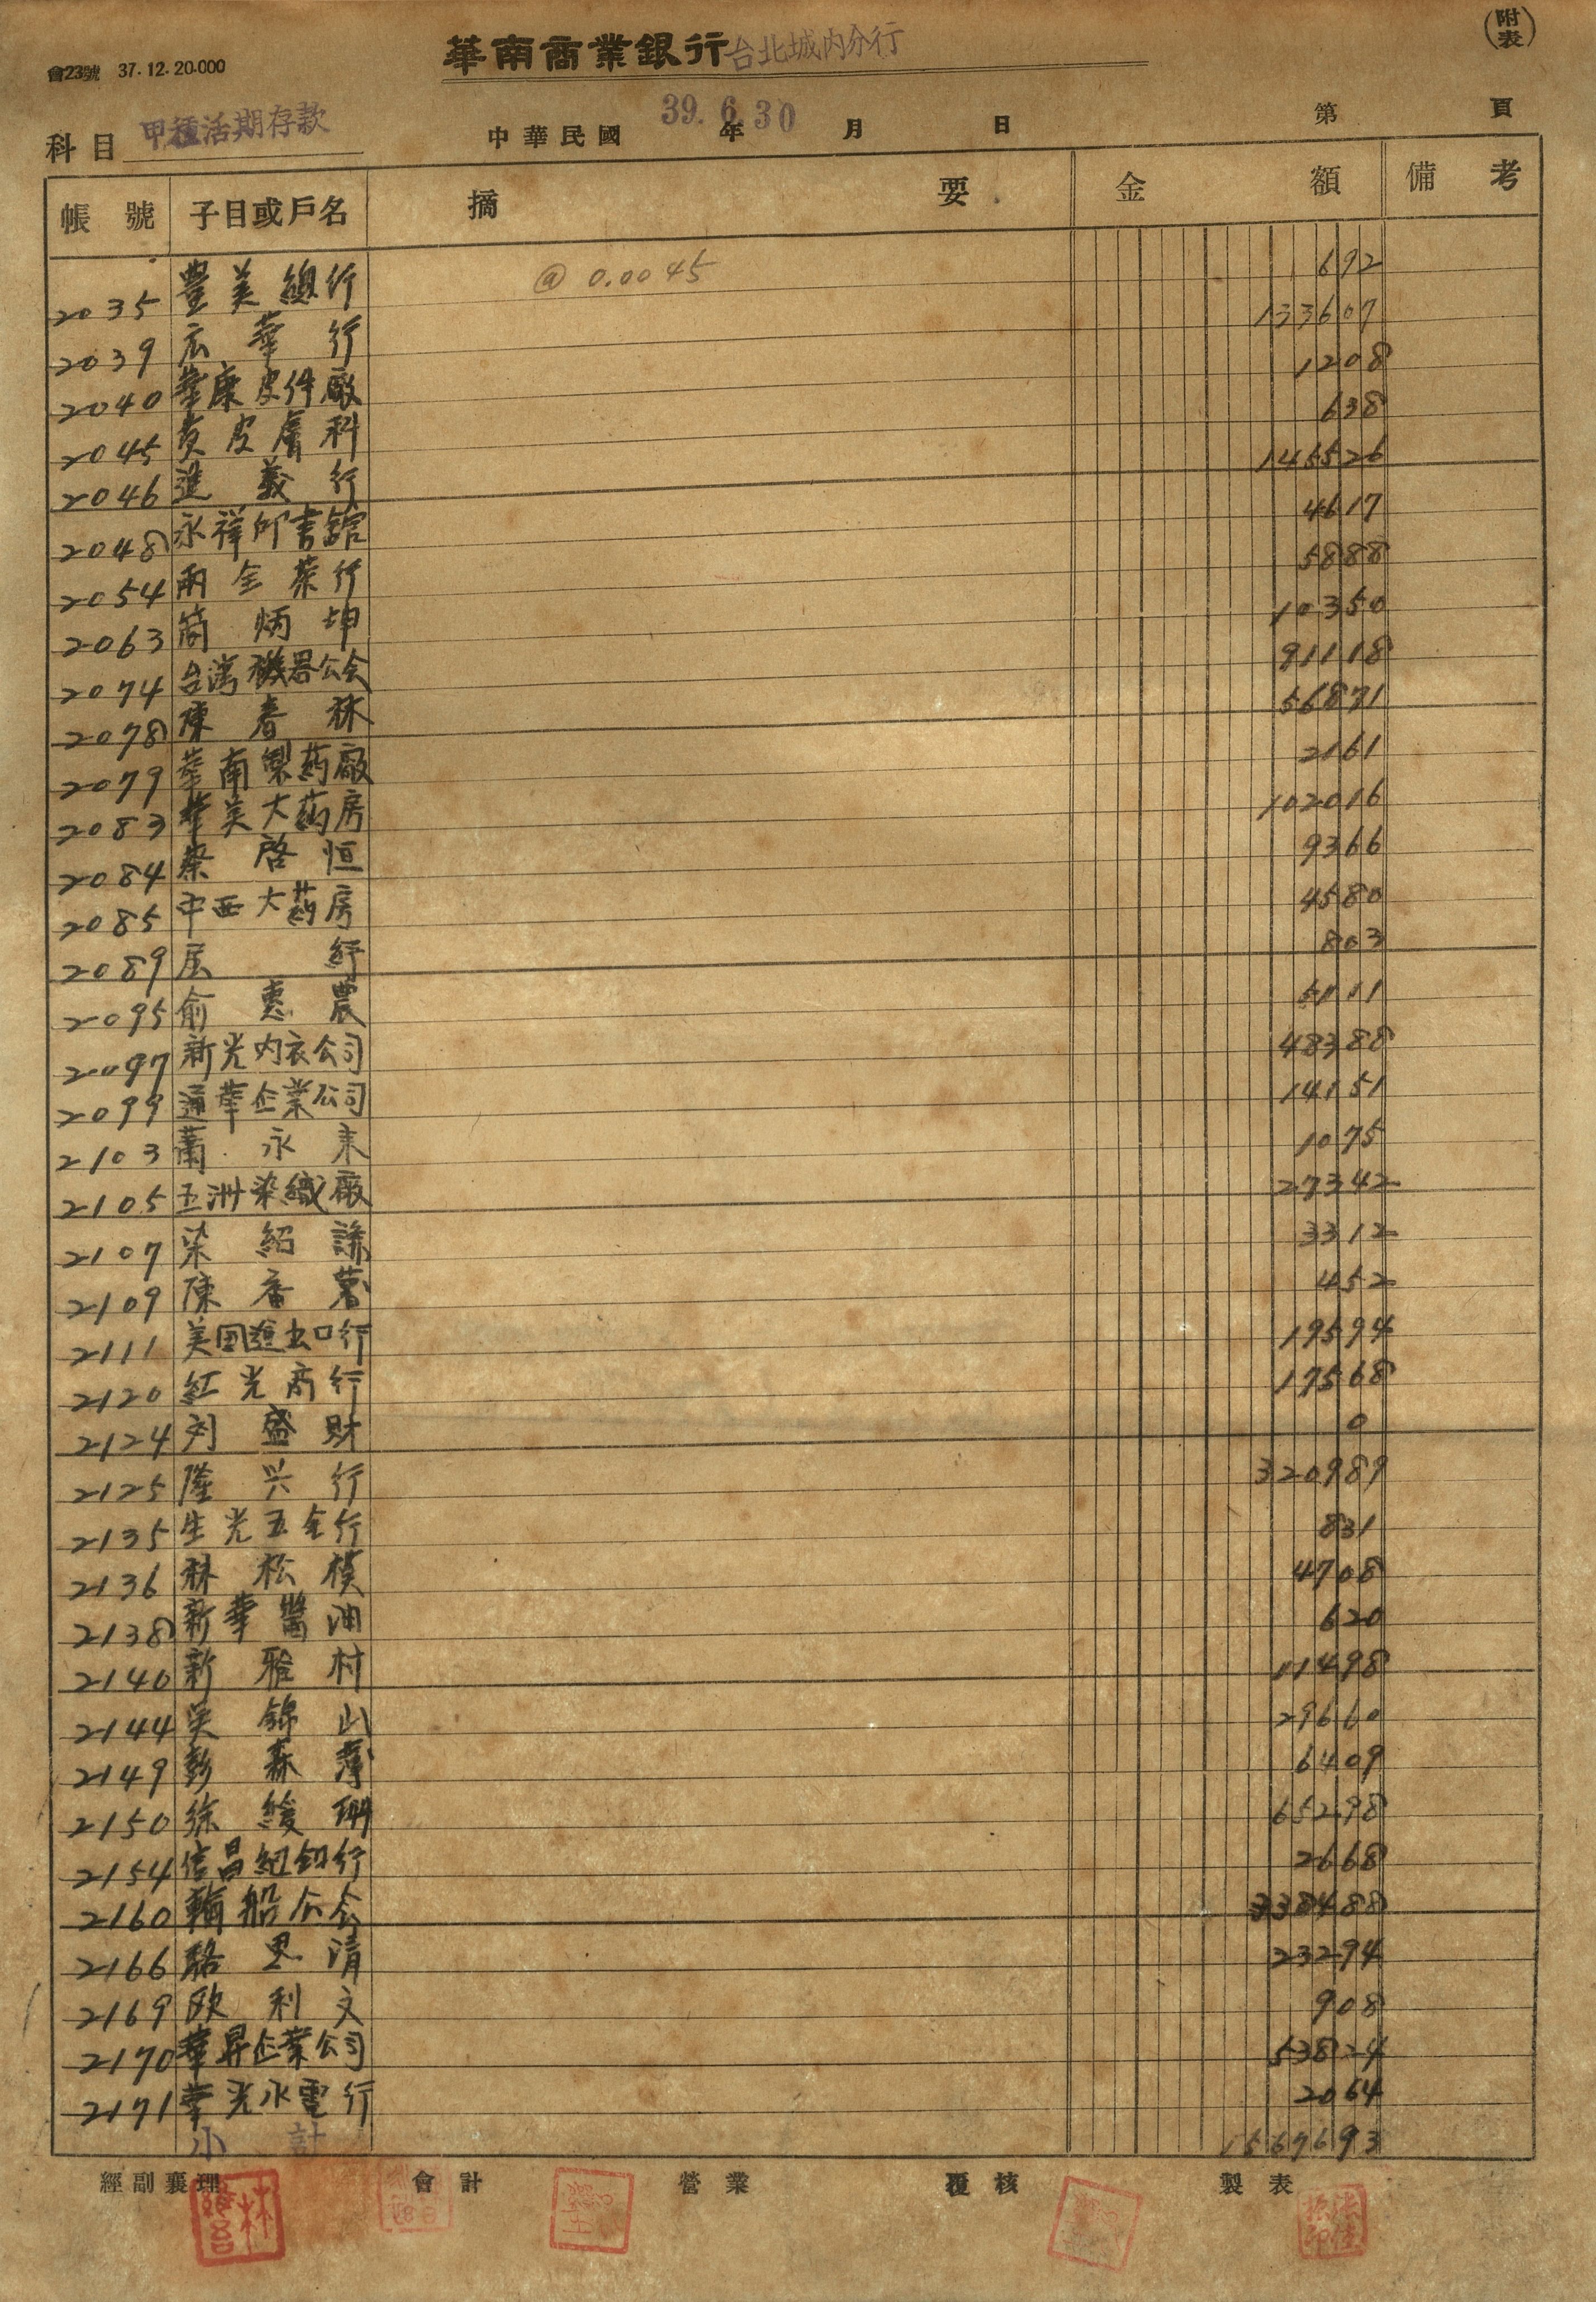 (附表)
會23號 37.12.20.000
華南商業銀行 台北城內分行
科目 甲種活期存款 中華民國 39.6.30 年 月 日 第 頁
帳號 子目或戶名 摘要 金額 備考
2035 豐美總行 @ 0.0045 692
2039 宏華行 133607
2040 華康皮件廠 1208
2045 黃皮膚科 638
2046 進義行 145526
2048 永祥印書館 4617
2054 兩全茶行 5888
2063 簡炳坤 10350
2074 台灣機器公会 91118
2078 陳春林 56871
2079 華南製药廠 2161
2083 華美大药房 102016
2084 蔡啓恒 9366
2085 中西大药房 4580
2089 屈紓 803
2095 俞惠農 5111
2097 新光内衣公司 48388
2099 通華企業公司 14151
2103 蕭永来 1075
2105 五洲染織廠 27342
2107 梁紹謙 3312
2109 陳香 452
2111 美国進出口行 19594
2120 紅光商行 17568
2124 刘盛財 0
2125 陸兴行 320989
2135 生光五金行 831
2136 林松模 4708
2138 新華醬油 620
2140 新雅村 11498
2144 吴錦山 29660
2149 彭森 6409
2150 徐綾珊 65298
2154 信昌紐釦行 2668
2160 輪船公会 338488
2166 駱思清 23294
2169 欧利文 908
2170 華昇企業公司 53824
2171 華光水電行 2064
小計 1567693
經副襄理 會計 營業 覆核 製表